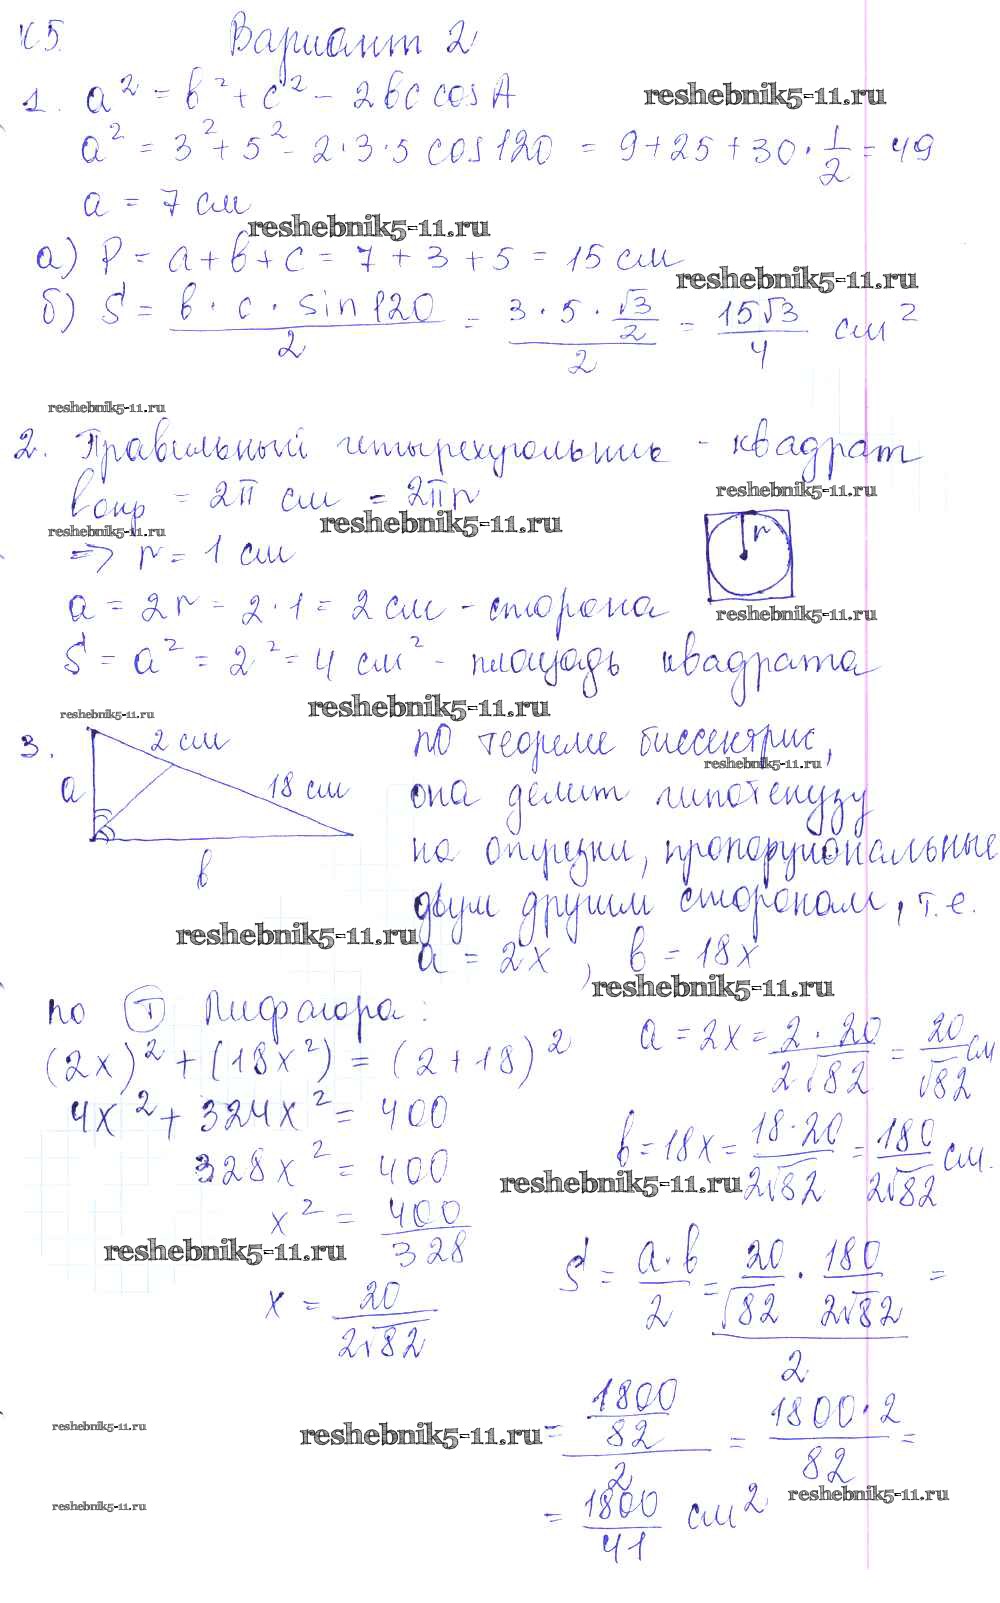 К5. Вариант 2
1. a² = b² + c² - 2bc cos A
reshebnik5-11.ru
a² = 3² + 5² - 2·3·5 cos 120 = 9 + 25 + 30 · 1/2 = 49
a = 7 см
reshebnik5-11.ru
а) P = a + b + c = 7 + 3 + 5 = 15 см
reshebnik5-11.ru
б) S = b · c · sin 120 / 2 = 3 · 5 · √3/2 / 2 = 15√3/4 см²
reshebnik5-11.ru
2. Правильный четырехугольник - квадрат
reshebnik5-11.ru
lокр = 2π см = 2πr
reshebnik5-11.ru
reshebnik5-11.ru
r
=> r = 1 см
a = 2r = 2·1 = 2 см - сторона
reshebnik5-11.ru
S = a² = 2² = 4 см² - площадь квадрата
reshebnik5-11.ru
reshebnik5-11.ru
3.
2 см
18 см
a
b
по теореме биссектрис,
reshebnik5-11.ru
она делит гипотенузу
на отрезки, пропорциональные
двум другим сторонам, т.е.
reshebnik5-11.ru
a = 2x, b = 18x
reshebnik5-11.ru
по Т Пифагора:
(2x)² + (18x²) = (2+18)²
4x² + 324x² = 400
328x² = 400
x² = 400/328
reshebnik5-11.ru
x = 20/2√82
a = 2x = 2·20/2√82 = 20/√82 см
b = 18x = 18·20/2√82 = 180/2√82 см.
reshebnik5-11.ru
S = a·b/2 = 20/√82 · 180/2√82 / 2 =
= 1800/82 / 2 = 1800·2/82 =
reshebnik5-11.ru
reshebnik5-11.ru
reshebnik5-11.ru
= 1800/41 см²
reshebnik5-11.ru